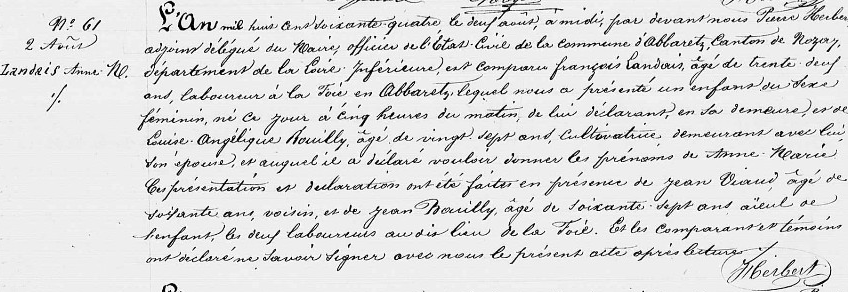 N° 61
2 Août
Landais Anne M.
L'An mil huit cent soixante-quatre le deux août, à midi, par devant nous Pierre Herbert
adjoint délégué du Maire, officier de l'État-Civil de la commune d'Abbaretz, Canton de Nozay,
département de la Loire-Inférieure, est comparu françois Landais, âgé de trente-deux
ans, laboureur à la Foie en Abbaretz, lequel nous a présenté un enfant du sexe
féminin, né ce jour à cinq heures du matin, de lui déclarant, en sa demeure, et de
Louise-Angélique Bouilly, âgé de vingt-sept ans, Cultivatrice demeurant avec lui
son épouse, et auquel il a déclaré vouloir donner les prénoms de Anne-Marie
Ces présentation et déclaration ont été faites en présence de Jean Viaud, âgé de
soixante ans, voisin, et de Jean Bouilly, âgé de soixante-sept ans aïeul de
l'enfant, les deux laboureurs au dit lieu de la Foie. Et les comparant et témoins
ont déclaré ne savoir signer avec nous le présent acte après lecture
Herbert